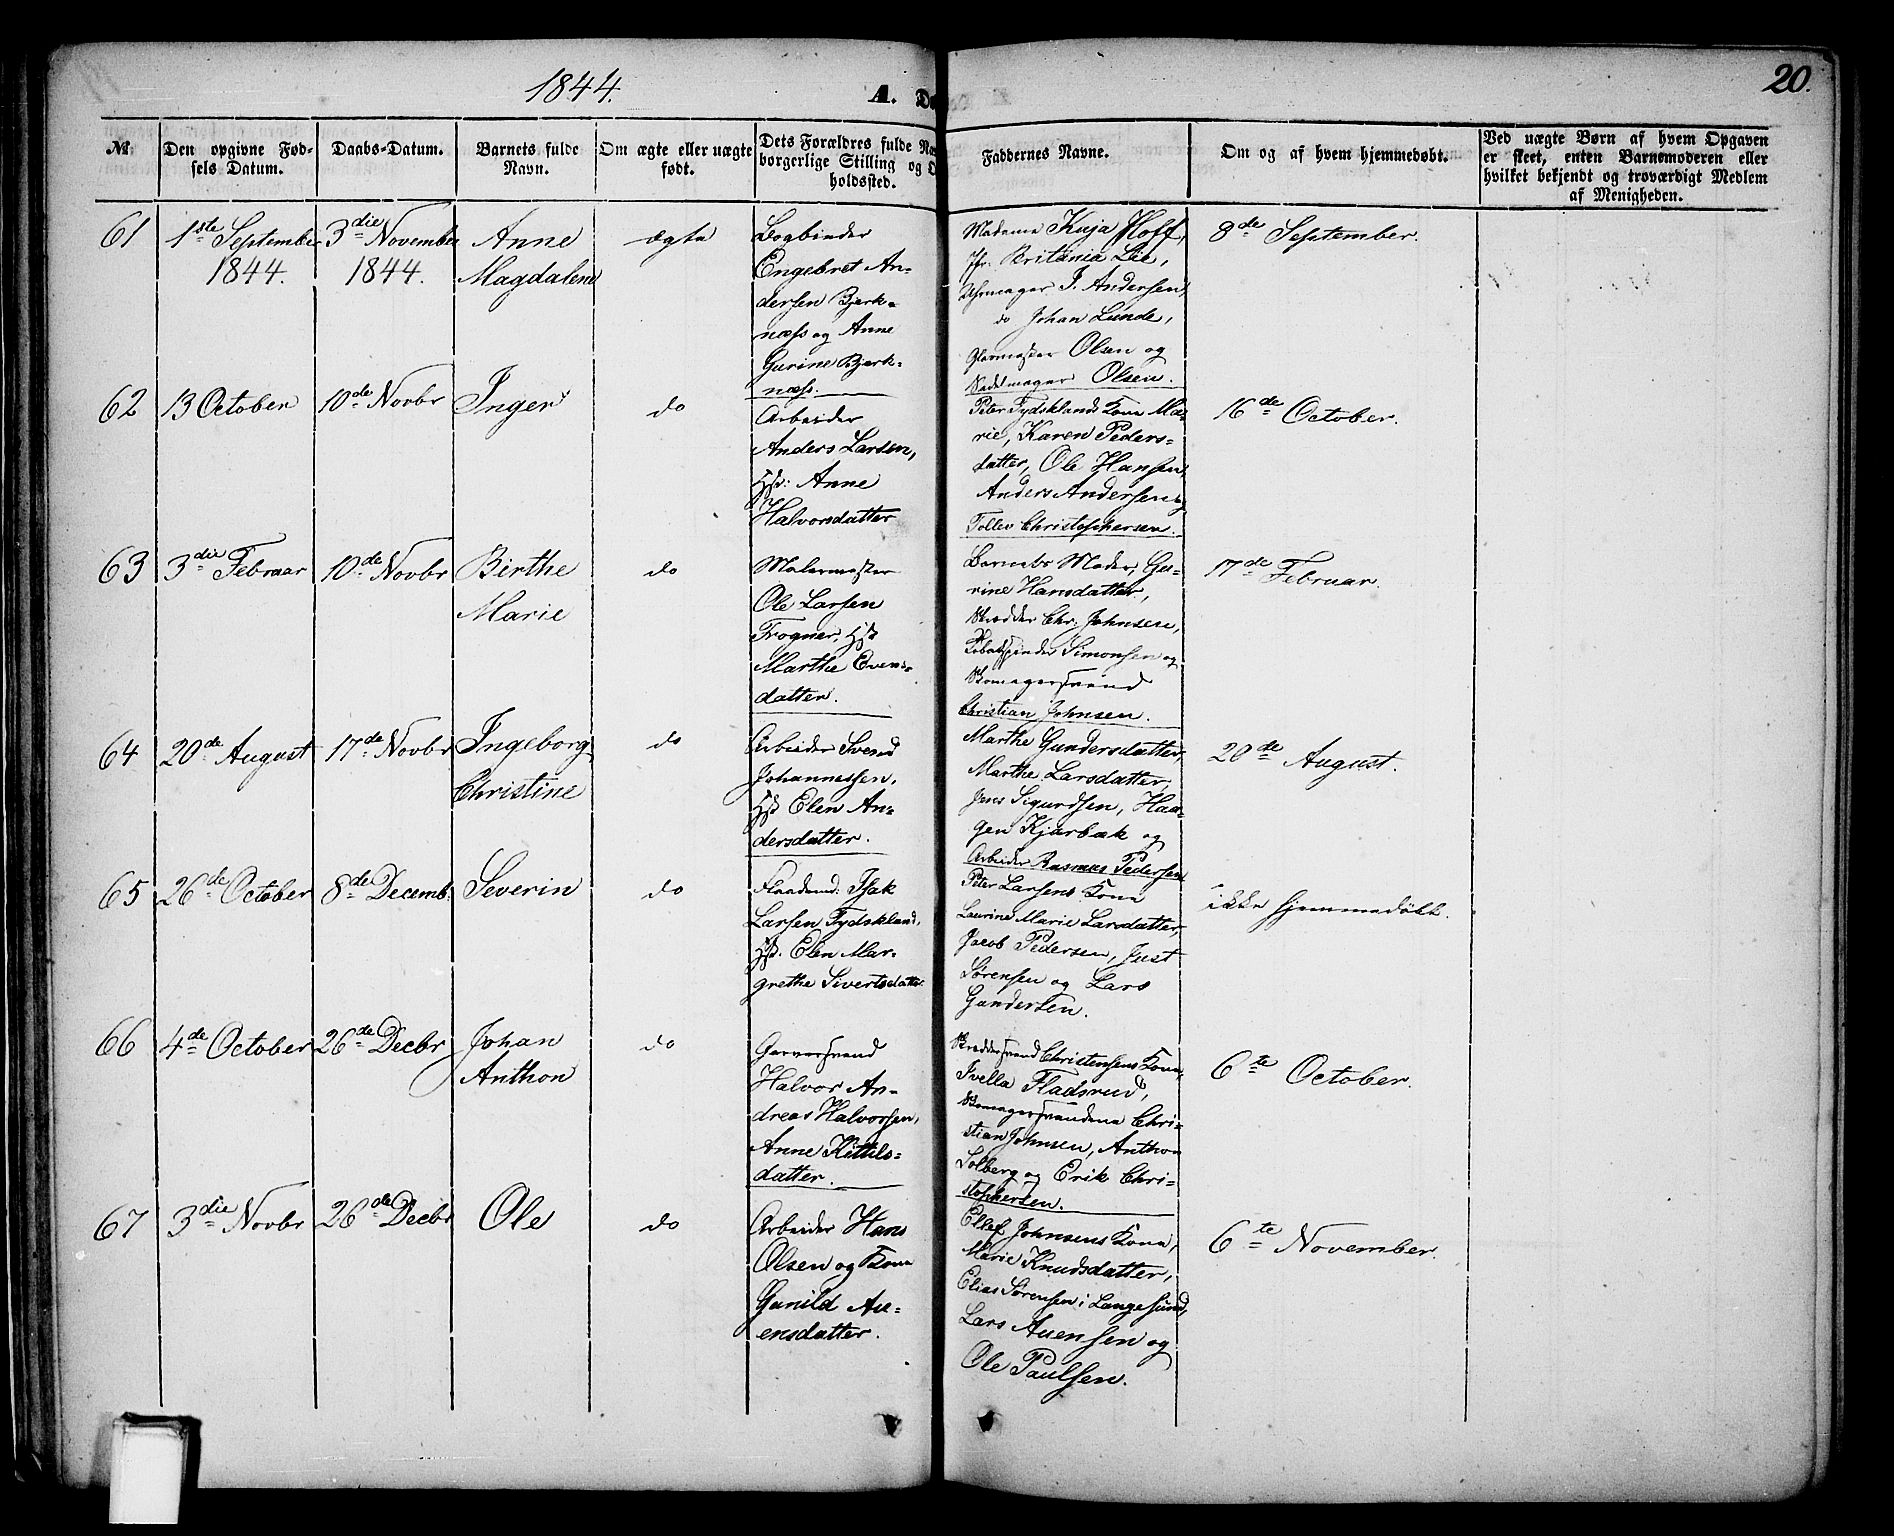 1844.
A.
20.
№
Den opgivne Fød-
sels Datum.
Daabs-Datum.
Barnets fulde
Navn.
Om ægte eller uægte
født.
Dets Forældres fulde
borgerlige Stilling og
holdssted.
Faddernes Navne.
Om og af hvem hjemmedøbt.
Ved uægte Børn af hvem Opgaven
er skeet, enten Barnemoderen eller
hvilket bekjendt og troværdigt Medlem
af Menigheden.
61
1ste September
1844.
3die November
1844.
Anne
Magdalene
ægte
Bogbinder
Engebret An-
dersen Bjerk-
næss og Anne
Gurine Bjerk-
næss.
Madame Kaja Hoff,
Jfr. Britania Lie,
Uhrmager J. Andersen,
do Johan Lunde,
Glarmester Olsen og
Sadelmager Olsen.
8de September.
62
13 October
10de Novbr
Inger
do
Arbeider
Anders Larsen,
Hst: Anne
Halvorsdatter
Peter Tydsklands Kone Ma-
rie, Karen Peders-
datter, Ole Hansen,
Anders Andersen og
Tollev Christophersen.
16de October.
63
3die Februar
10de Novbr
Birthe
Marie
do
Malermester
Ole Larsen
Trogner, Hst
Marthe Evens-
datter.
Barnets Moder, Gu-
rine Hansdatter,
Skrædder Chr. Johnsen,
Simonsen og
Skomagersvend
Christian Johnsen.
17de Februar.
64
20de August
17de Novbr
Ingeborg
Christine
do
Arbeider Svend
Johannessen,
Hst Elen An-
dersdatter.
Marthe Gundersdatter,
Marthe Larsdatter,
Jens Sigurdsen, Haa-
gen Kjærbæk og
Arbeider Rasmus Pedersen
20de August.
65
26de October
8de Decemb.
Severin
do
Isak
Larsen Tydskland,
Hst. Elen Mar-
grethe Sivertsdatter.
Peter Larsens Kone
Laurine Marie Larsdatter,
Jacob Pedersen, Just
Sørensen og Lars
Gundersen.
ikke hjemmedøbt.
66
4de October
26de Decbr
Johan
Anthon
do
Garversvend
Halvor An-
dreas Halvorsen,
Anne Kittils-
datter.
Skræddersvend Christensens Kone,
Ivella Fladsrud,
Skomagersvendene Chri-
stian Johnsen, Anthon
Solberg og Erik Chri-
stophersen.
6te October.
67
3die Novbr
26de Decbr
Ole
do
Arbeider Hans
Olsen og Kone
Gunild Au-
ensdatter.
Ellef Johnsens Kone,
Marie Knudsdatter,
Elias Sørensen i Langesund,
Lars Auensen og
Ole Paulsen.
6te November.